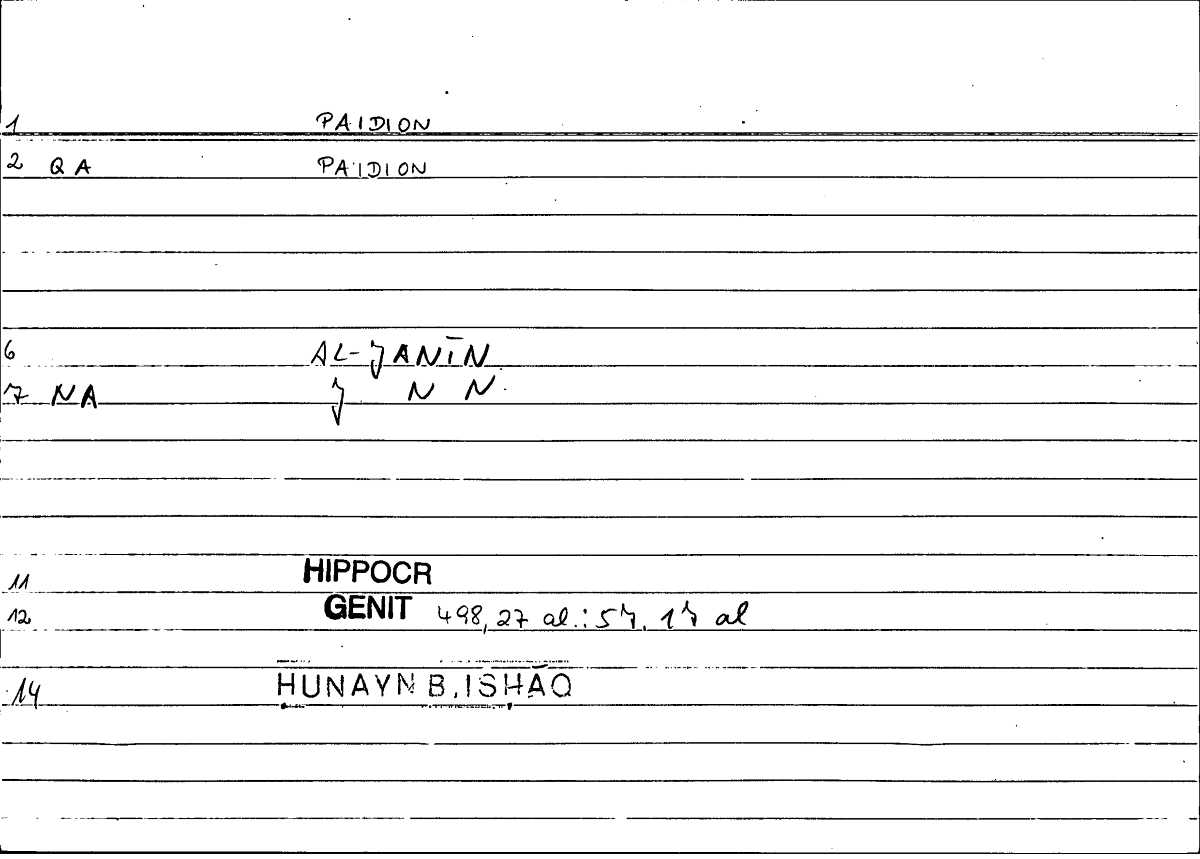 1 PAIDION
2 QA PAIDION
6 AL-JANĪN
7 NA J N N
11 HIPPOCR
12 GENIT 498,27 al.: 57, 17 al
14 ḤUNAYN B. ISḤĀQ